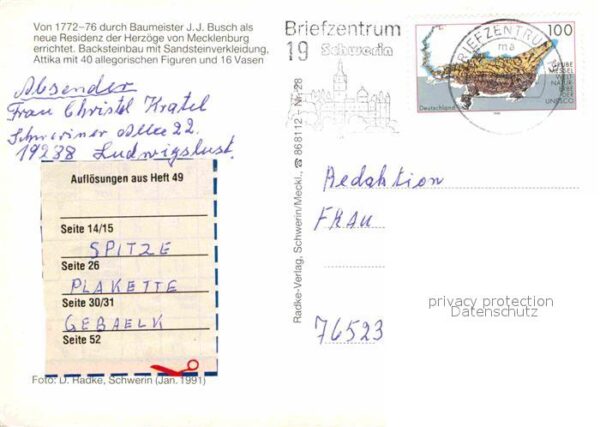 Von 1772–76 durch Baumeister J.J. Busch als
neue Residenz der Herzöge von Mecklenburg
errichtet. Backsteinbau mit Sandsteinverkleidung,
Attika mit 40 allegorischen Figuren und 16 Vasen
Absender
Frau Christel Kratel
Schweriner Allee 22.
19238 Ludwigslust.
Auflösungen aus Heft 49
Seite 14/15
SPITZE
Seite 26
PLAKETTE
Seite 30/31
GEBAELK
Seite 52
Foto: D. Radke, Schwerin (Jan. 1991)
Radke-Verlag, Schwerin/Meckl., ☎ 868112 - Nr. 28
Briefzentrum
19 Schwerin
BRIEFZENTRUM
ma
100
GRUBE
MESSEL
WELT
NATUR
ERBE
DER
UNESCO
Deutschland
Redaktion
FRAU
76523
privacy protection
Datenschutz